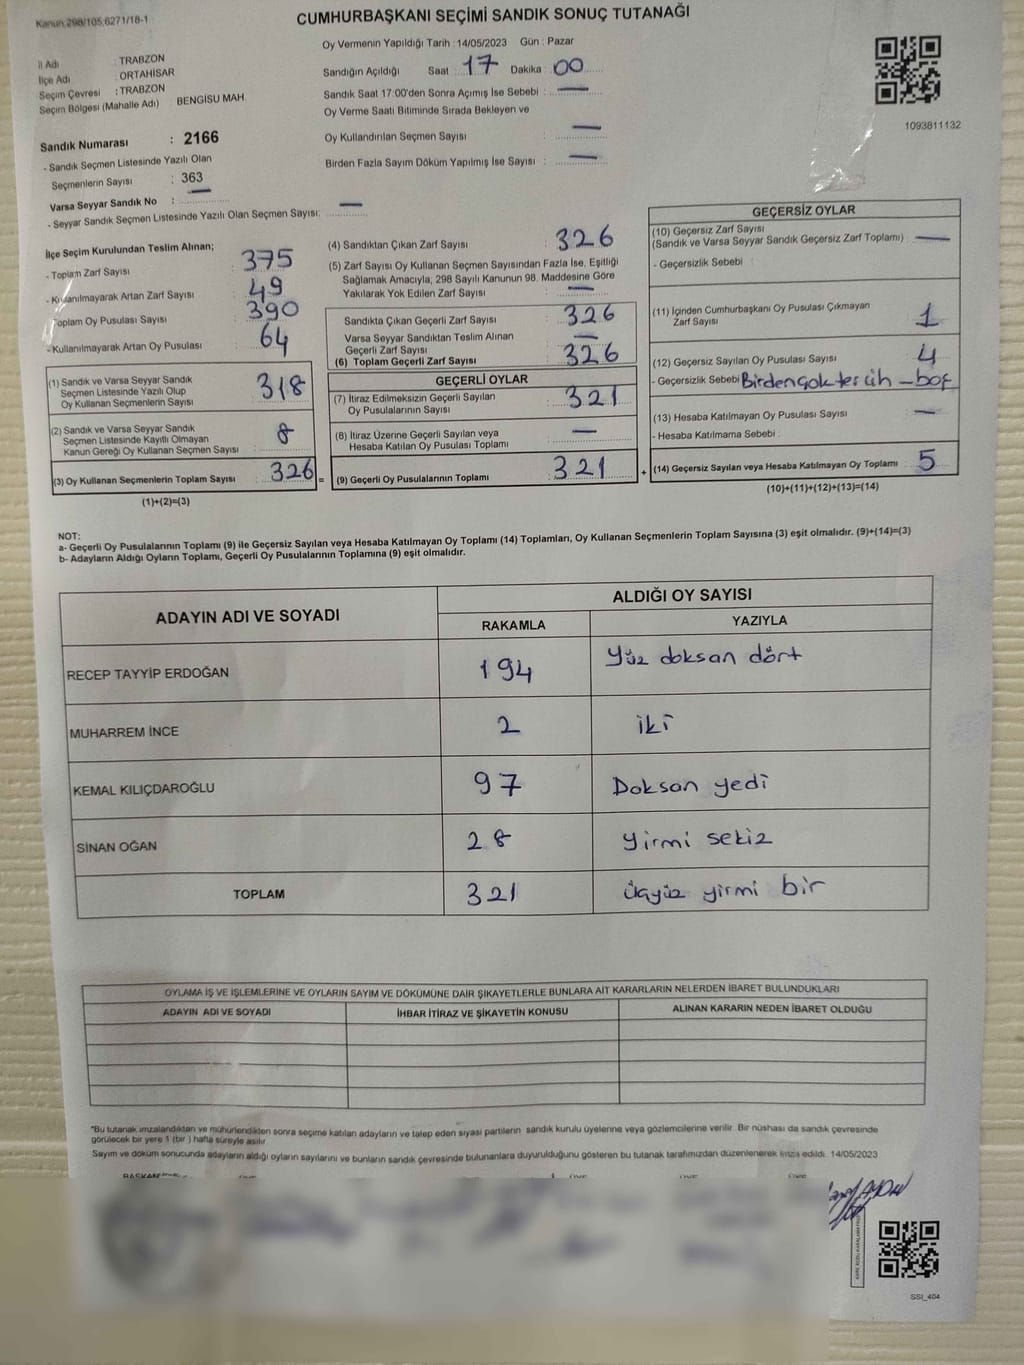 Kanun.298/105,6271/18-1
CUMHURBAŞKANI SEÇİMİ SANDIK SONUÇ TUTANAĞI
İl Adı : TRABZON
İlçe Adı : ORTAHİSAR
Seçim Çevresi : TRABZON
Seçim Bölgesi (Mahalle Adı) : BENGİSU MAH.
Sandık Numarası : 2166
- Sandık Seçmen Listesinde Yazılı Olan
Seçmenlerin Sayısı : 363
Varsa Seyyar Sandık No : —
- Seyyar Sandık Seçmen Listesinde Yazılı Olan Seçmen Sayısı: —
Oy Vermenin Yapıldığı Tarih : 14/05/2023 Gün : Pazar
Sandığın Açıldığı Saat : 17 Dakika : 00
Sandık Saat 17:00'den Sonra Açımış İse Sebebi : —
Oy Verme Saati Bitiminde Sırada Bekleyen ve
Oy Kullandırılan Seçmen Sayısı : —
Birden Fazla Sayım Döküm Yapılmış İse Sayısı : —
1093811132
İlçe Seçim Kurulundan Teslim Alınan;
- Toplam Zarf Sayısı : 375
- Kullanılmayarak Artan Zarf Sayısı : 49
Toplam Oy Pusulası Sayısı : 390
- Kullanılmayarak Artan Oy Pusulası : 64
(1) Sandık ve Varsa Seyyar Sandık
Seçmen Listesinde Yazılı Olup
Oy Kullanan Seçmenlerin Sayısı : 318
(2) Sandık ve Varsa Seyyar Sandık
Seçmen Listesinde Kayıtlı Olmayan
Kanun Gereği Oy Kullanan Seçmen Sayısı : 8
(3) Oy Kullanan Seçmenlerin Toplam Sayısı : 326 =
(1)+(2)=(3)
(4) Sandıktan Çıkan Zarf Sayısı : 326
(5) Zarf Sayısı Oy Kullanan Seçmen Sayısından Fazla İse, Eşitliği
Sağlamak Amacıyla; 298 Sayılı Kanunun 98. Maddesine Göre
Yakılarak Yok Edilen Zarf Sayısı : —
Sandıkta Çıkan Geçerli Zarf Sayısı : 326
Varsa Seyyar Sandıktan Teslim Alınan
Geçerli Zarf Sayısı : —
(6) Toplam Geçerli Zarf Sayısı : 326
GEÇERLİ OYLAR
(7) İtiraz Edilmeksizin Geçerli Sayılan
Oy Pusulalarının Sayısı : 321
(8) İtiraz Üzerine Geçerli Sayılan veya
Hesaba Katılan Oy Pusulası Toplamı : —
(9) Geçerli Oy Pusulalarının Toplamı : 321 +
GEÇERSİZ OYLAR
(10) Geçersiz Zarf Sayısı
(Sandık ve Varsa Seyyar Sandık Geçersiz Zarf Toplamı) : —
- Geçersizlik Sebebi :
(11) İçinden Cumhurbaşkanı Oy Pusulası Çıkmayan
Zarf Sayısı : 1
(12) Geçersiz Sayılan Oy Pusulası Sayısı : 4
- Geçersizlik Sebebi Birden çok tercih - boş
(13) Hesaba Katılmayan Oy Pusulası Sayısı : —
- Hesaba Katılmama Sebebi :
(14) Geçersiz Sayılan veya Hesaba Katılmayan Oy Toplamı : 5
(10)+(11)+(12)+(13)=(14)
NOT:
a- Geçerli Oy Pusulalarının Toplamı (9) ile Geçersiz Sayılan veya Hesaba Katılmayan Oy Toplamı (14) Toplamları, Oy Kullanan Seçmenlerin Toplam Sayısına (3) eşit olmalıdır. (9)+(14)=(3)
b- Adayların Aldığı Oyların Toplamı, Geçerli Oy Pusulalarının Toplamına (9) eşit olmalıdır.
ADAYIN ADI VE SOYADI
ALDIĞI OY SAYISI
RAKAMLA YAZIYLA
RECEP TAYYİP ERDOĞAN 194 Yüz doksan dört
MUHARREM İNCE 2 iki
KEMAL KILIÇDAROĞLU 97 Doksan yedi
SİNAN OĞAN 28 yirmi sekiz
TOPLAM 321 üçyüz yirmi bir
OYLAMA İŞ VE İŞLEMLERİNE VE OYLARIN SAYIM VE DÖKÜMÜNE DAİR ŞİKAYETLERLE BUNLARA AİT KARARLARIN NELERDEN İBARET BULUNDUKLARI
ADAYIN ADI VE SOYADI İHBAR İTİRAZ VE ŞİKAYETİN KONUSU ALINAN KARARIN NEDEN İBARET OLDUĞU
"Bu tutanak imzalandıktan ve mühürlendikten sonra seçime katılan adayların ve talep eden siyasi partilerin sandık kurulu üyelerine veya gözlemcilerine verilir. Bir nüshası da sandık çevresinde
görülecek bir yere 1 (bir ) hafta süreyle asılır.
Sayım ve döküm sonucunda adayların aldığı oyların sayılarını ve bunların sandık çevresinde bulunanlara duyurulduğunu gösteren bu tutanak tarafımızdan düzenlenerek imza edildi. 14/05/2023
SSI_404